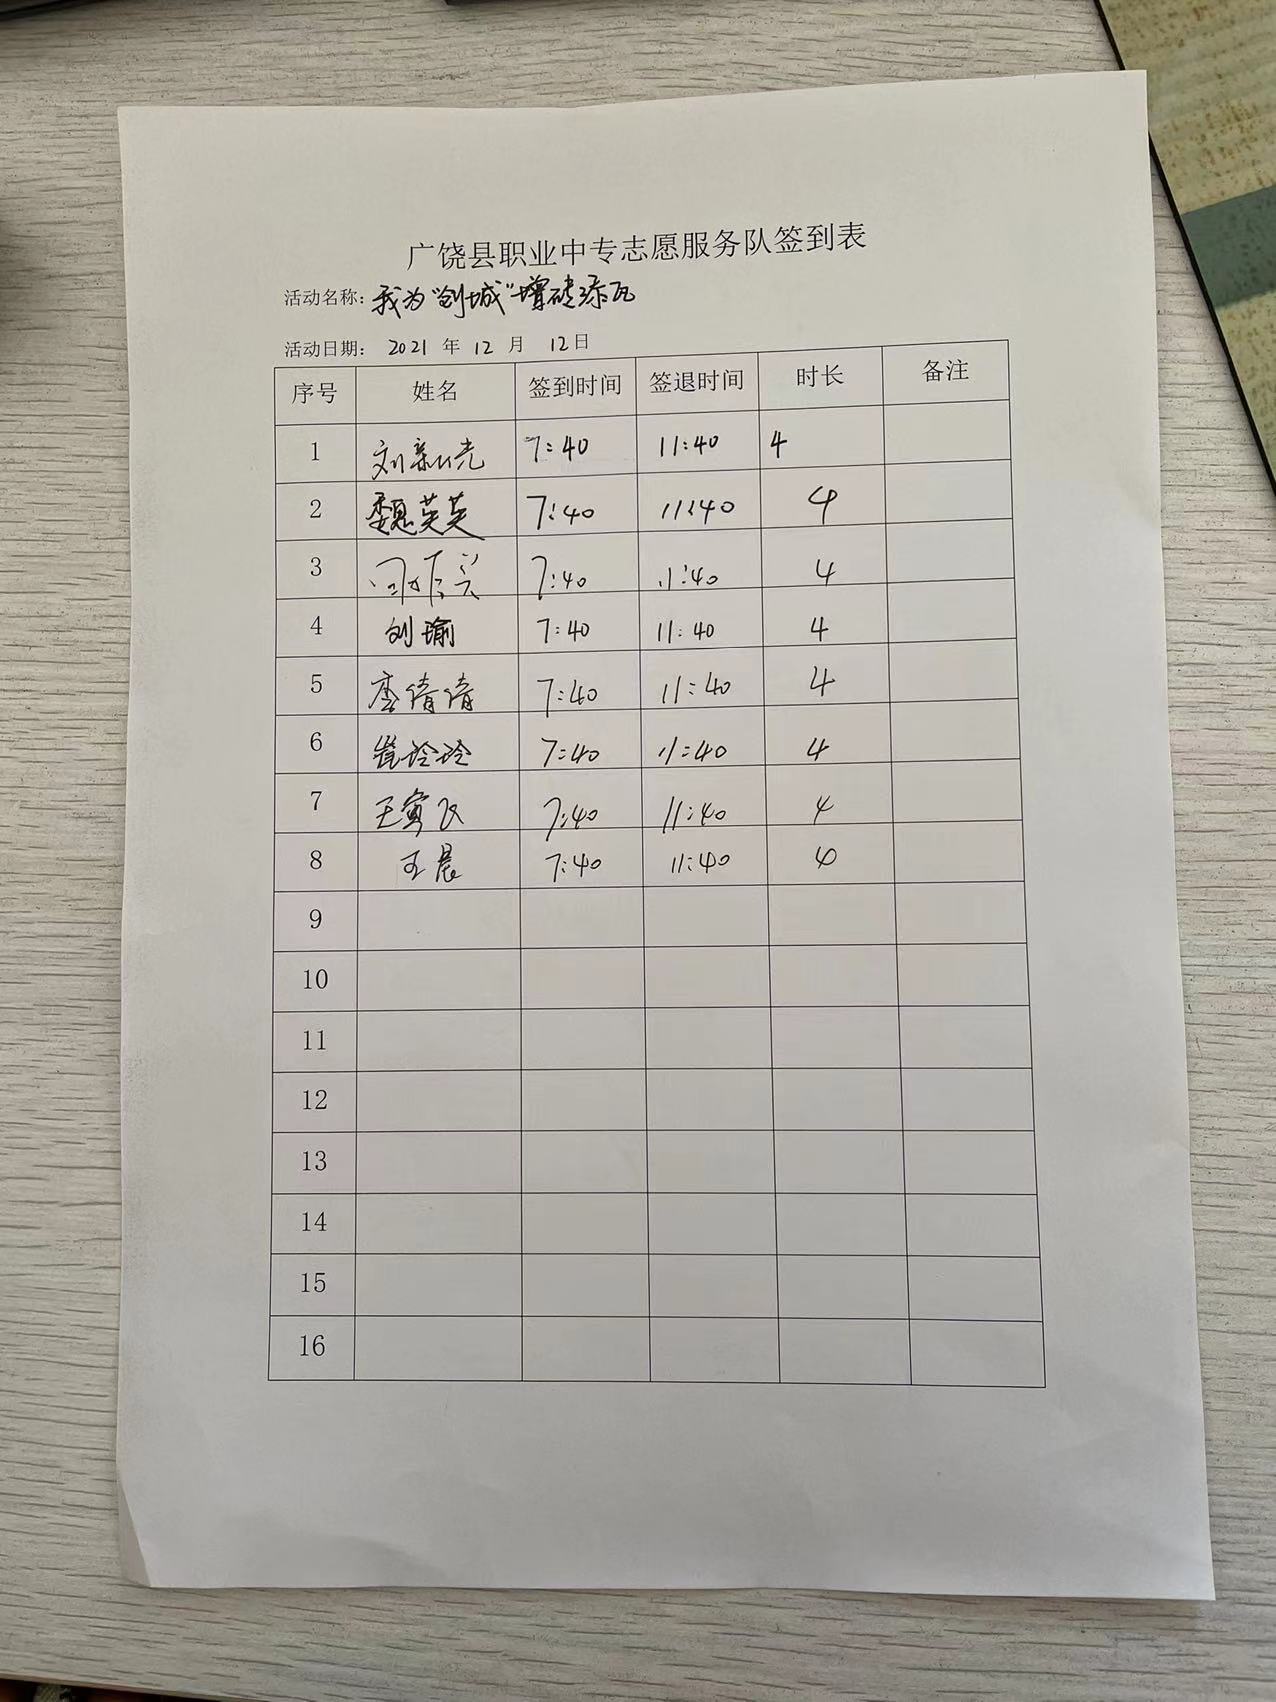 广饶县职业中专志愿服务队签到表
活动名称：我为"创城"增砖添瓦
活动日期： 2021 年 12 月 12日
序号 姓名 签到时间 签退时间 时长 备注
1 刘新光 7:40 11:40 4
2 魏英英 7:40 11:40 4
3 7:40 11:40 4
4 刘瑜 7:40 11:40 4
5 李倩倩 7:40 11:40 4
6 崔玲玲 7:40 11:40 4
7 王寅飞 7:40 11:40 4
8 王晨 7:40 11:40 4
9
10
11
12
13
14
15
16